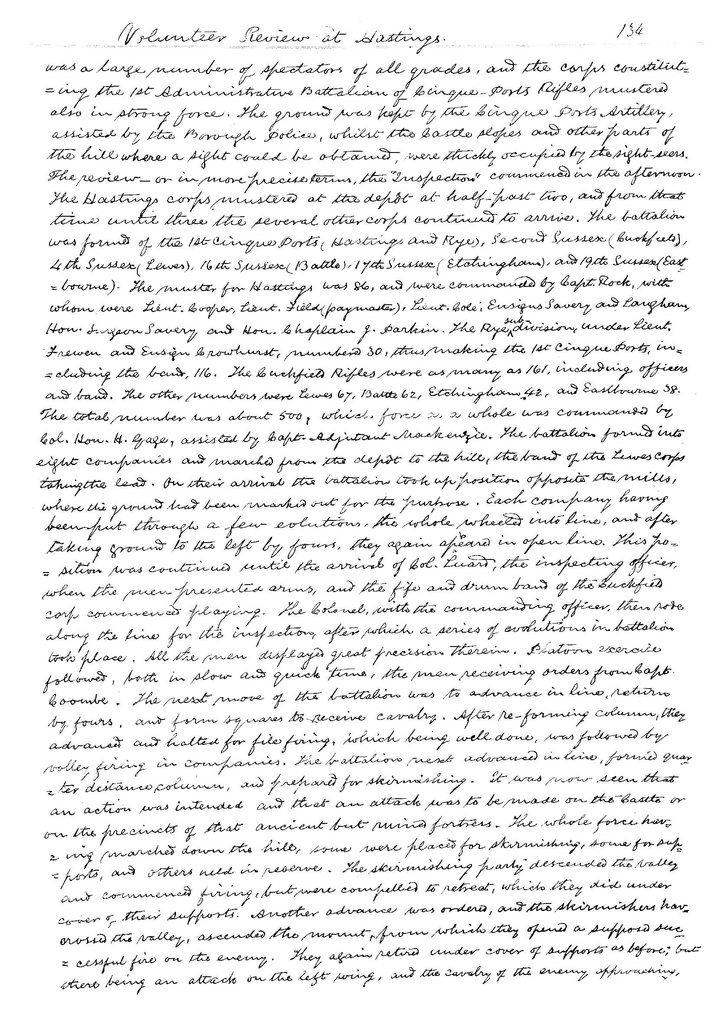 Volunteer Review at Hastings. 134
was a large number of spectators of all grades, and the corps constitut=
=ing the 1st Administrative Battalian of Cinque-Ports Rifles mustered
also in strong force. The ground was kept by the Cinque Ports Artillery,
assisted by the Borough Police, whilst the Castle slopes and other parts of
the hill where a sight could be obtained, were thickly occupied by the sight-seers.
The review — or in more precise terms, the "Inspection" commenced in the afternoon.
The Hastings corps mustered at the depôt at half-past two, and from that
time until three the several other corps continued to arrive. The battalion
was formed of the 1st Cinque Ports (Hastings and Rye), Second Sussex (Cuckfield),
4th Sussex (Lewes), 16th Sussex (Battle), 17th Sussex (Etchingham), and 19th Sussex (East
=bourne). The muster for Hastings was 86, and were commanded by Capt. Rock, with
whom were Lieut. Cooper, Lieut. Field (paymaster), Lieut. Cole, Ensigns Savery and Langham,
Hon. Surgeon Savery and Hon. Chaplain J. Parkin. The Rye sub division, under Lieut.
Frewen and Ensign Crowhurst, numbered 30, thus making the 1st Cinque Ports, in=
=cluding the band, 116. The Cuckfield Rifles were as many as 161, including officers
and band. The other numbers were Lewes 67, Battle 62, Etchingham 42, and Eastbourne 38.
The total number was about 500, which force as a whole was commanded by
Col. Hon. H. Gage, assisted by Capt. Adjutant Mackenzie. The battalion formed into
eight companies and marched from the depôt to the hill, the band of the Lewes corps
taking the lead. On their arrival the battalion took up position opposite the mills,
where the ground had been marked out for the purpose. Each company having
been put through a few evolutions, the whole wheeled into line, and after
taking ground to the left by fours, they again appeared in open line. This po=
=sition was continued until the arrival of Col. Luard, the inspecting officer,
when the men presented arms, and the fife and drum band of the Cuckfield
corp commenced playing. The Colonel, with the commanding officer, then rode
along the line for the inspection, after which a series of evolutions in battalion
took place. All the men displayed great precision therein. Platoon exercise
followed, both in slow and quick time, the men receiving orders from Capt.
Coombe. The next move of the battalion was to advance in line, return
by fours, and form squares to receive cavalry. After re-forming column, they
advanced and halted for file firing, which being well done, was followed by
volley firing in companies. The battalion next advanced in line, formed quar
=ter distance column, and prepared for skirmishing. It was now seen that
an action was intended and that an attack was to be made on the Castle or
on the precincts of that ancient but ruined fortress. The whole force hav=
=ing marched down the hill, some were placed for skirmishing, some for sup=
=ports, and others held in reserve. The skirmishing party descended the valley
and commenced firing, but were compelled to retreat, which they did under
cover of their supports. Another advance was ordered, and the skirmishers hav
crossed the valley, ascended the mount, from which they opened a supposed suc
=cessful fire on the enemy. They again retired under cover of supports as before; but
there being an attack on the left wing, and the cavalry of the enemy approaching,